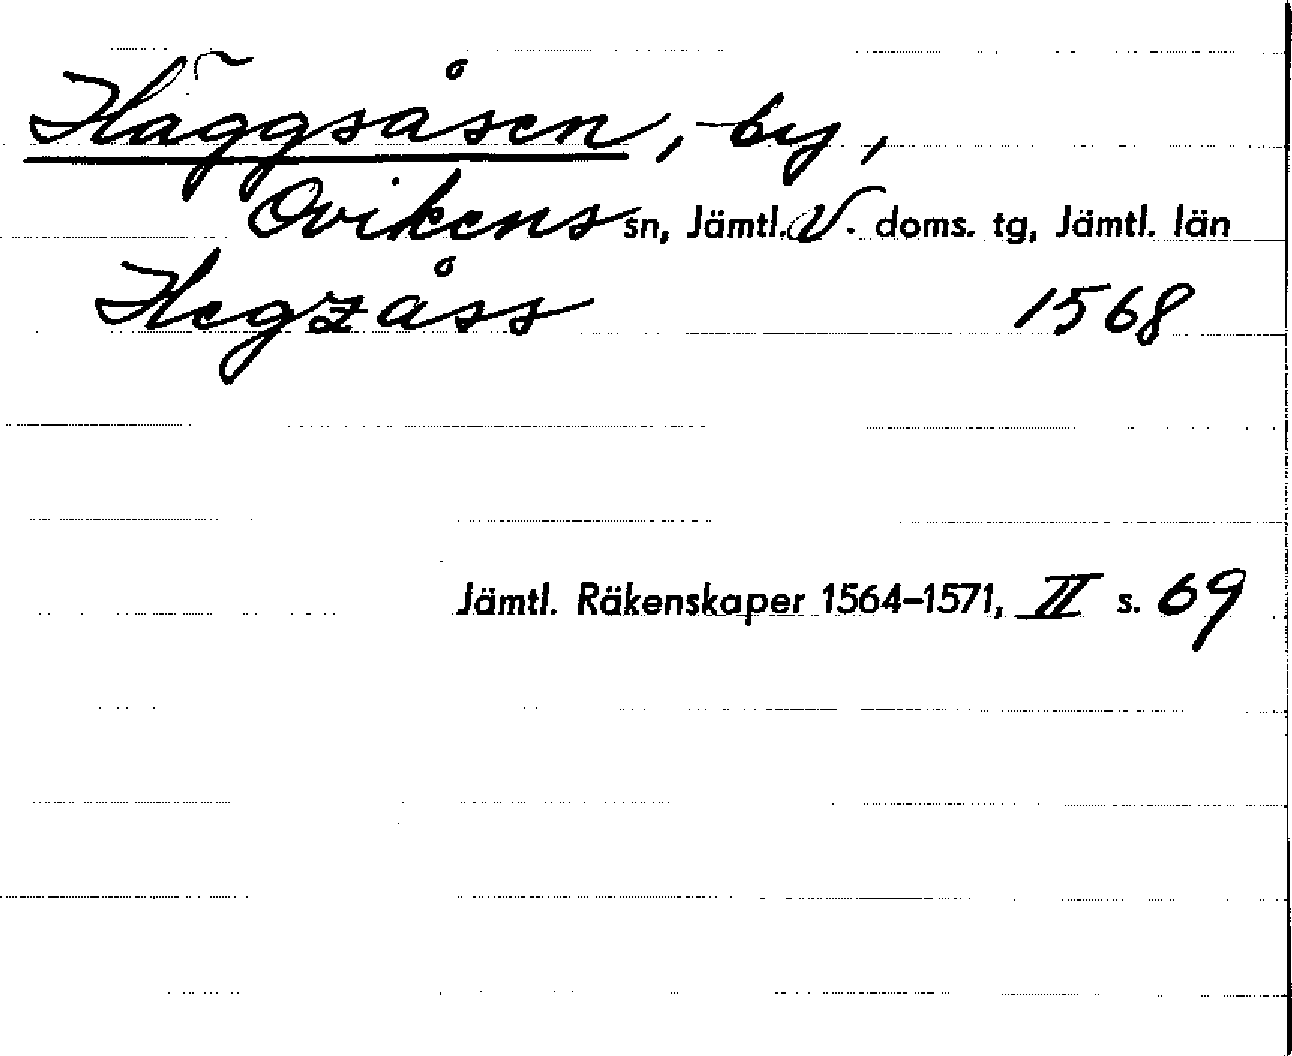 Häggsåsen, by,
Ovikens sn, Jämtl. V. doms. tg, Jämtl. län
Hegzåss 1568
Jämtl. Räkenskaper 1564–1571, II s. 69